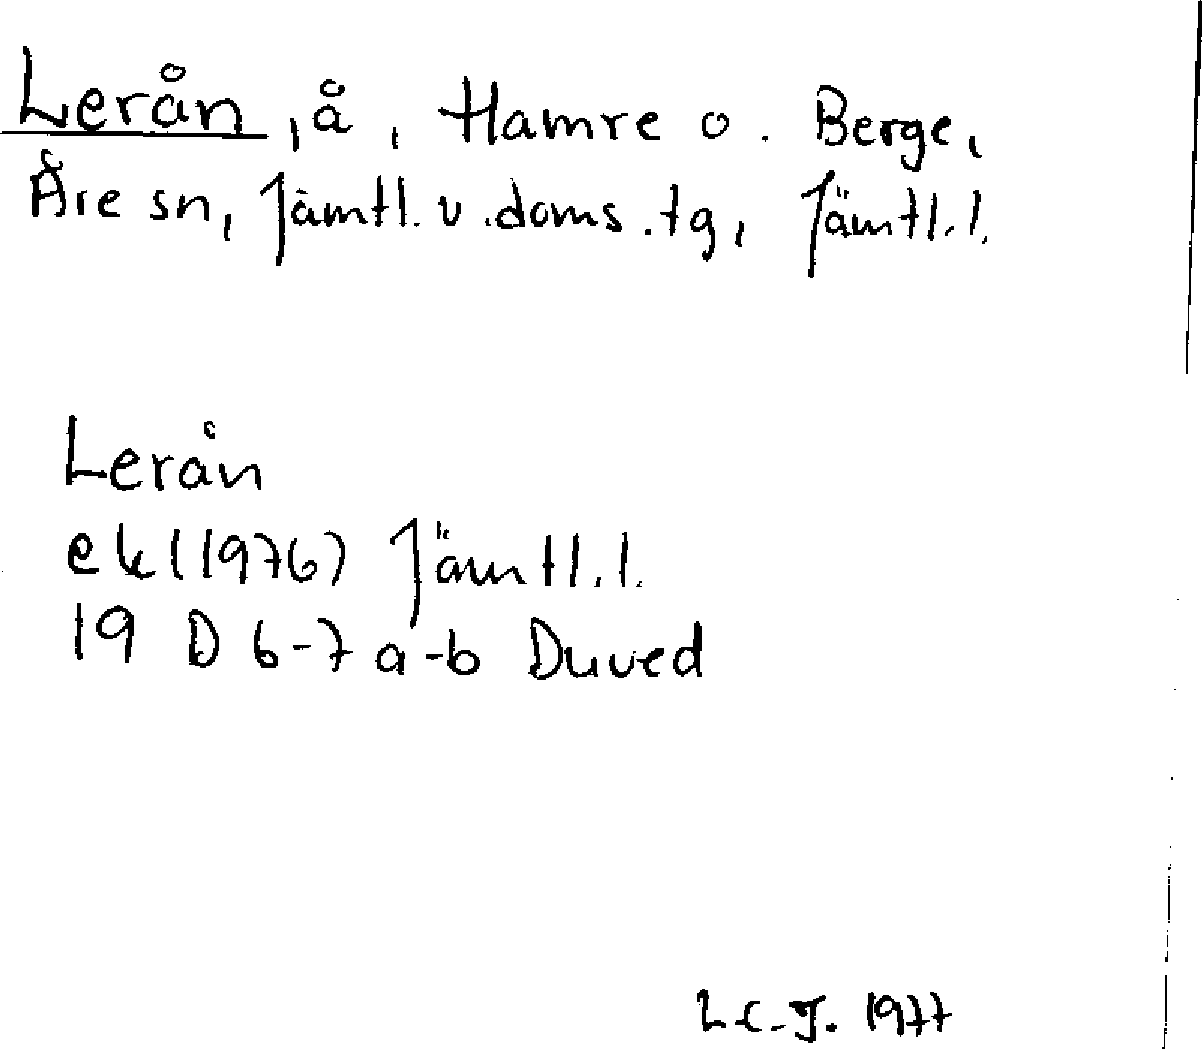 Lerån, å, Hamre o. Berge,
Åre sn, Jämtl. v. doms. tg, Jämtl. l.
Lerån
ek (1976) Jämtl. l.
19 D 6-7 a-b Duved
L.C-J. 1977